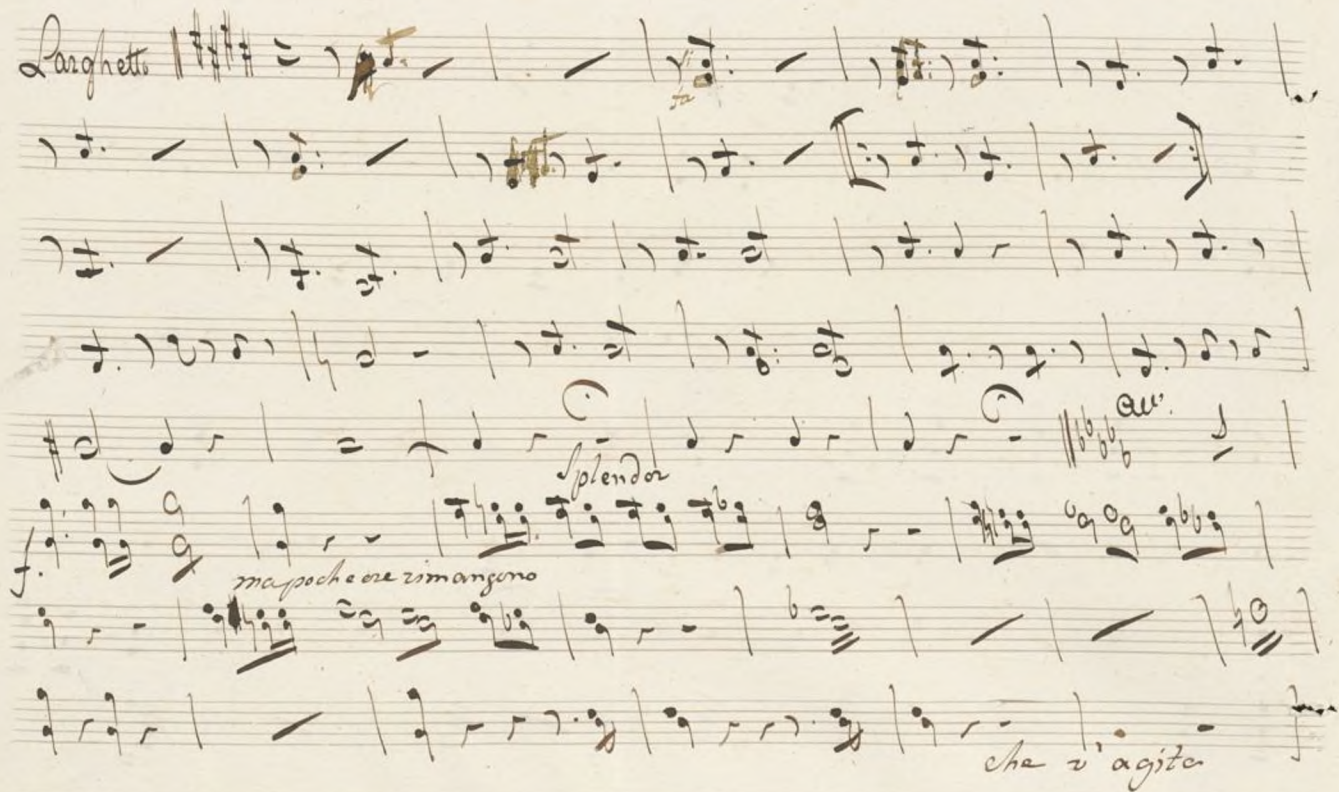 Larghetto
All°.
Splendor
f.
ma poche ore rimangono
che v'agita